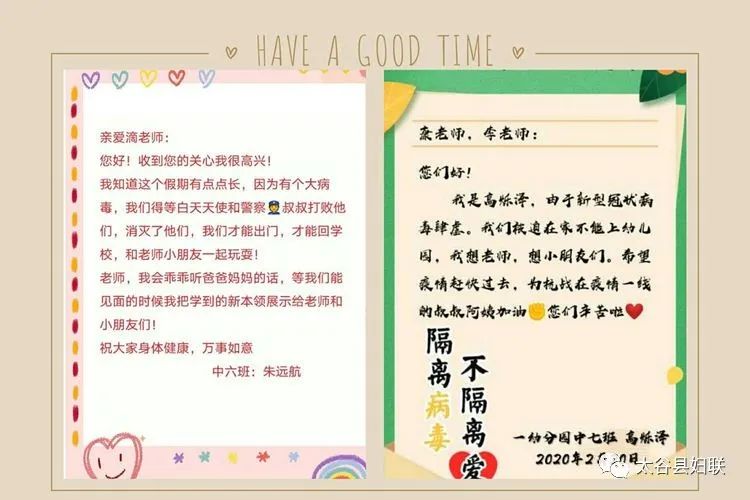 HAVE A GOOD TIME
亲爱滴老师：
您好！收到您的关心我很高兴！
我知道这个假期有点点长，因为有个大病
毒，我们得等白天天使和警察👮叔叔打败他
们，消灭了他们，我们才能出门，才能回学
校，和老师小朋友一起玩耍！
老师，我会乖乖听爸爸妈妈的话，等我们能
见面的时候我把学到的新本领展示给老师和
小朋友们！
祝大家身体健康，万事如意
中六班：朱远航
老师，李老师：
您们好！
我是高烁泽，由于新型冠状病
毒肆虐。我们被迫在家不能上幼儿
园，我想老师，想小朋友们。希望
疫情赶快过去，为抗战在疫情一线
的叔叔阿姨加油✊您们辛苦啦❤
隔离病毒
不隔离爱
一幼分园中七班 高烁泽
2020年2月 0日
太谷县妇联